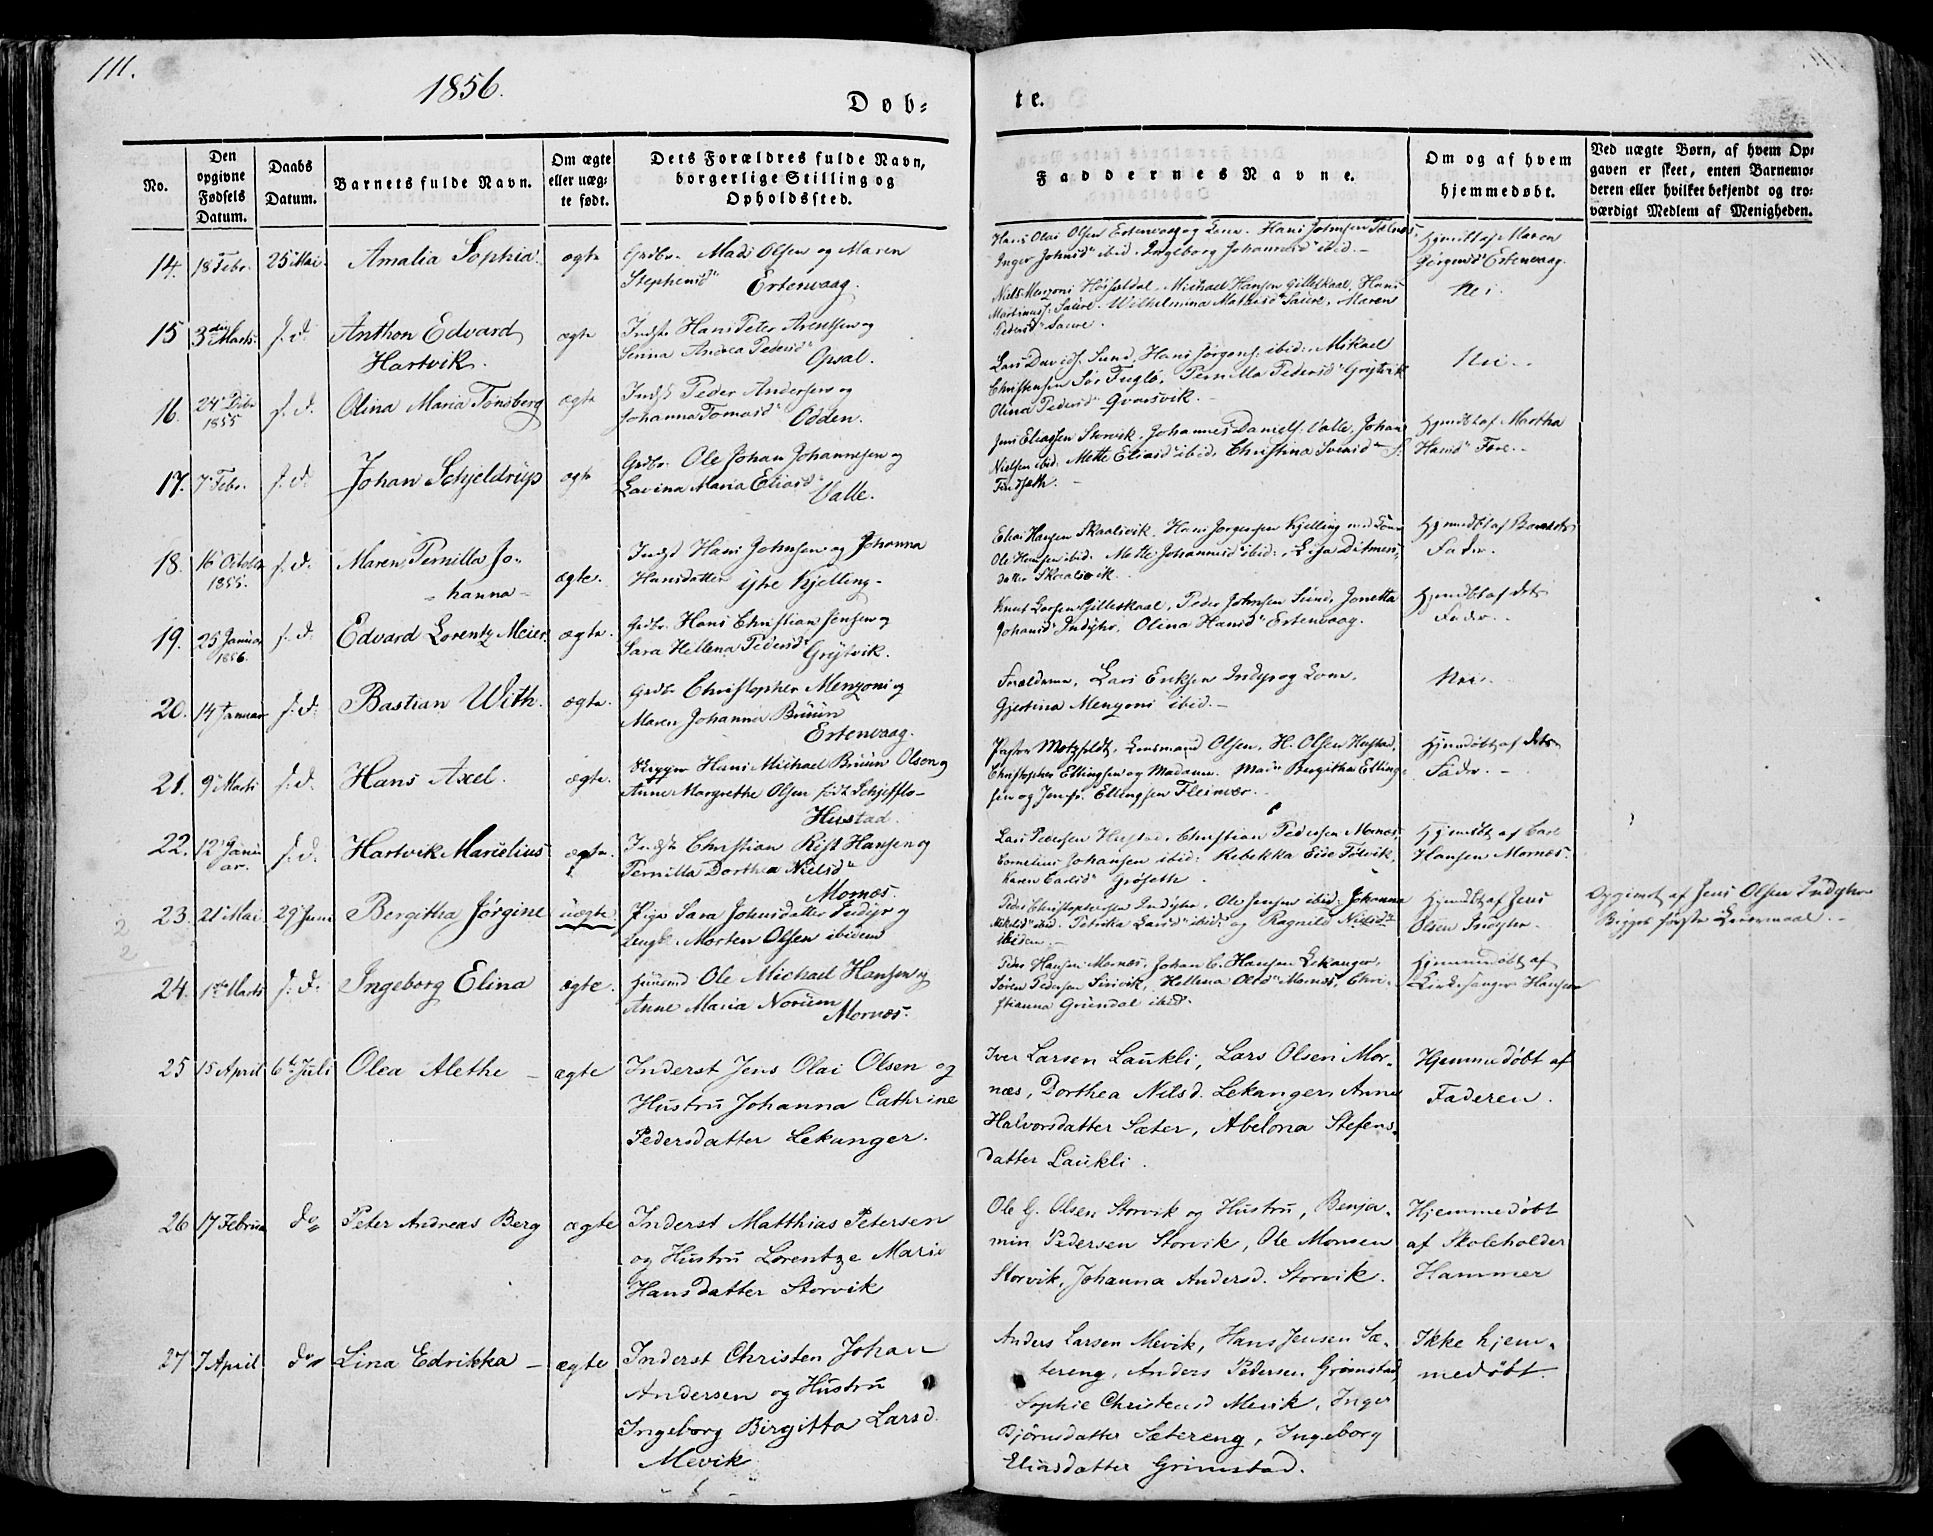 111.
1856.
Døb-
te.
No.
Den opgivne Fødsels Datum.
Daabs Datum.
Barnets fulde Navn.
Om ægte eller uægte født.
Dets Forældres fulde Navn, borgerlige Stilling og Opholdssted.
Faddernes Navne.
Om og af hvem hjemmedøbt.
Ved uægte Børn, af hvem Opgaven er skeet, enten Barnemoderen eller hvilket bekjendt og troværdigt Medlem af Menigheden.
14. 18 Febr. 25 Mai. Amalia Sophia. ægte
Grdbr. Mads Olsen og Maren
Ertenvaag.
Hans Olai Olsen Ertenvaag og Kone. Hans Johnsen
Inger Johnsd ibid. Ingeborg Johannesd ibid.
Hjemdt af Maren
Jørgensd Ertenvaag.
15 3die Marts. s. d. Anthon Edvard
Hartvik. ægte
Indst Hans Peter Arentsen og
Andrea Pedersd Opsal.
Niels Menzoni Michael Hansen Gilleskaal, Hans
Wilhelmina Maren
Pedersd
Nei.
16. 24 Dcbr 1855 s. d. Olina Maria Tønsberg ægte
Indst Peder Andersen og
Johanna Tomasd Odden.
Lars Davids. Sund, Hans Jørgens. ibid: Mikael
Christensen Sør Fuglø, Pernilla Pedersd
Olina Pedersd
Nei.
17. 7 Febr. s. d. Johan Schjeldrup ægte
Grdbr. Ole Johan Johannesen og
Lavina Maria Eliasd Valle.
Jens Eliassen Storvik. Johannes Daniels. Valle, Johan
Nielsen ibid. Mette Eliasd ibid, Christina
Hjemdt af Martha
Hansd
18. 16 October 1855. s. d. Maren Pernilla Jo-
hanna ægte.
Indst Hans Johnsen og Johanna
Hansdatter ytre Kjelling.
Elias Hansen Skaalsvik. Hans Jørgensen Kjelling med
Ole Hansen ibid. Mette Johannesd ibid., Lisa Ditmers-
datter Skaalsvik
Hjemmedøbt af Barnets
Fader.
19. 25 Januar 1856. s. d. Edvard Lorentz Meier. ægte.
Grdbr. Hans Christian Jensen og
Sara Hellena Pedersd
Knut Larsen Gilleskaal, Peder Johnsen Sund, Jonetta
Johansd Indyhr, Olina Hansd Ertenvaag.
Hjemdt af dets
Fader.
20. 14 Januar s. d. Bastian With. ægte.
Grdbr Christopher Menzoni og
Maren Johanna Bruun
Ertenvaag.
Forældrene, Lars Eriksen Indyr og Kone.
Gjertina Menzoni ibid.
Nei.
21. 9 Marts s. d. Hans Axel. ægte.
Hans Michael Bruun Olsen og
Anne Margrethe Olsen født
Hustad.
Pastor Motzfeldt, Lensmand Olsen, H. Olsen Hustad,
Christopher Ellingsen og Madame. Birgitha Elling-
sen og Ellingsen Fleinvær.
Hjemdøbt af dets
Fader.
22. 12 Janu-
ar. s. d. Hartvik Marelius ægte.
Indst Christian Rist Hansen og
Pernilla Dorthea Nielsd
Mornæs.
Lars Pedersen Hustad, Christian Pedersen Mornæs,
Cornelius Johansen ibid: Rebekka
Karen
Hjemdøt af Carl
Hansen Mornæs.
23. 21 Mai 29 Juni Bergitha Jørgine uægte
Pige Sara Johnsdatter Indyr og
Morten Olsen ibidem
Peder Christophersen Indyhr, Ole Jensen ibid. Johanna
ibid. Petrika ibid og Ragnild Nielsd
ibidem.
Hjemdbt af Jens
Olsen Indyhr.
Opgivet af Jens Olsen Indyhr
første Leiermaal.
24. 1ste Marts s. d. Ingeborg Elina ægte.
Huusmd Ole Michael Hansen og
Anne Maria Norum
Mornæs.
Peder Hansen Mornæs, Johan C. Hansen Lekanger,
Søren Pedersen Hellena Olsd Mornæs, Chri-
stianna Grundal ibid.
Hjemmedøbt af
Kirkesanger Hansen
25 15 April 6te Juli Olea Alethe – ægte
Inderst Jens Olai Olsen og
Hustru Johanna Cathrine
Pedersdatter Lekanger.
Iver Larsen Laukli, Lars Olsen Mor-
næs, Dorthea Nilsd. Lekanger, Anne
Halvorsdatter Sæter, Abelona Stefens-
datter Laukli.
Hjemmedøbt af
Faderen.
26 17 Februa do Peter Andreas Berg ægte
Inderst Matthias Petersen
og Hustru Lorentze Marie
Hansdatter Storvik
Ole G. Olsen Storvik og Hustru, Benja-
min Pedersen Storvik, Ole Monsen
Storvik, Johanna Andersd. Storvik.
Hjemmedøbt
af Skoleholder
Hammer
27 7 April do Lina Edrikka – ægte
Inderst Christen Johan
Andersen og Hustru
Ingeborg Birgitta Larsd.
Mevik
Anders Larsen Mevik, Hans Jensen Sæ-
tereng, Anders Pedersen Grimstad,
Sophie Christensd Mevik, Inger
Bjørnsdatter Sætereng, Ingeborg
Eliasdatter Grimstad.
Ikke hjem-
medøbt.